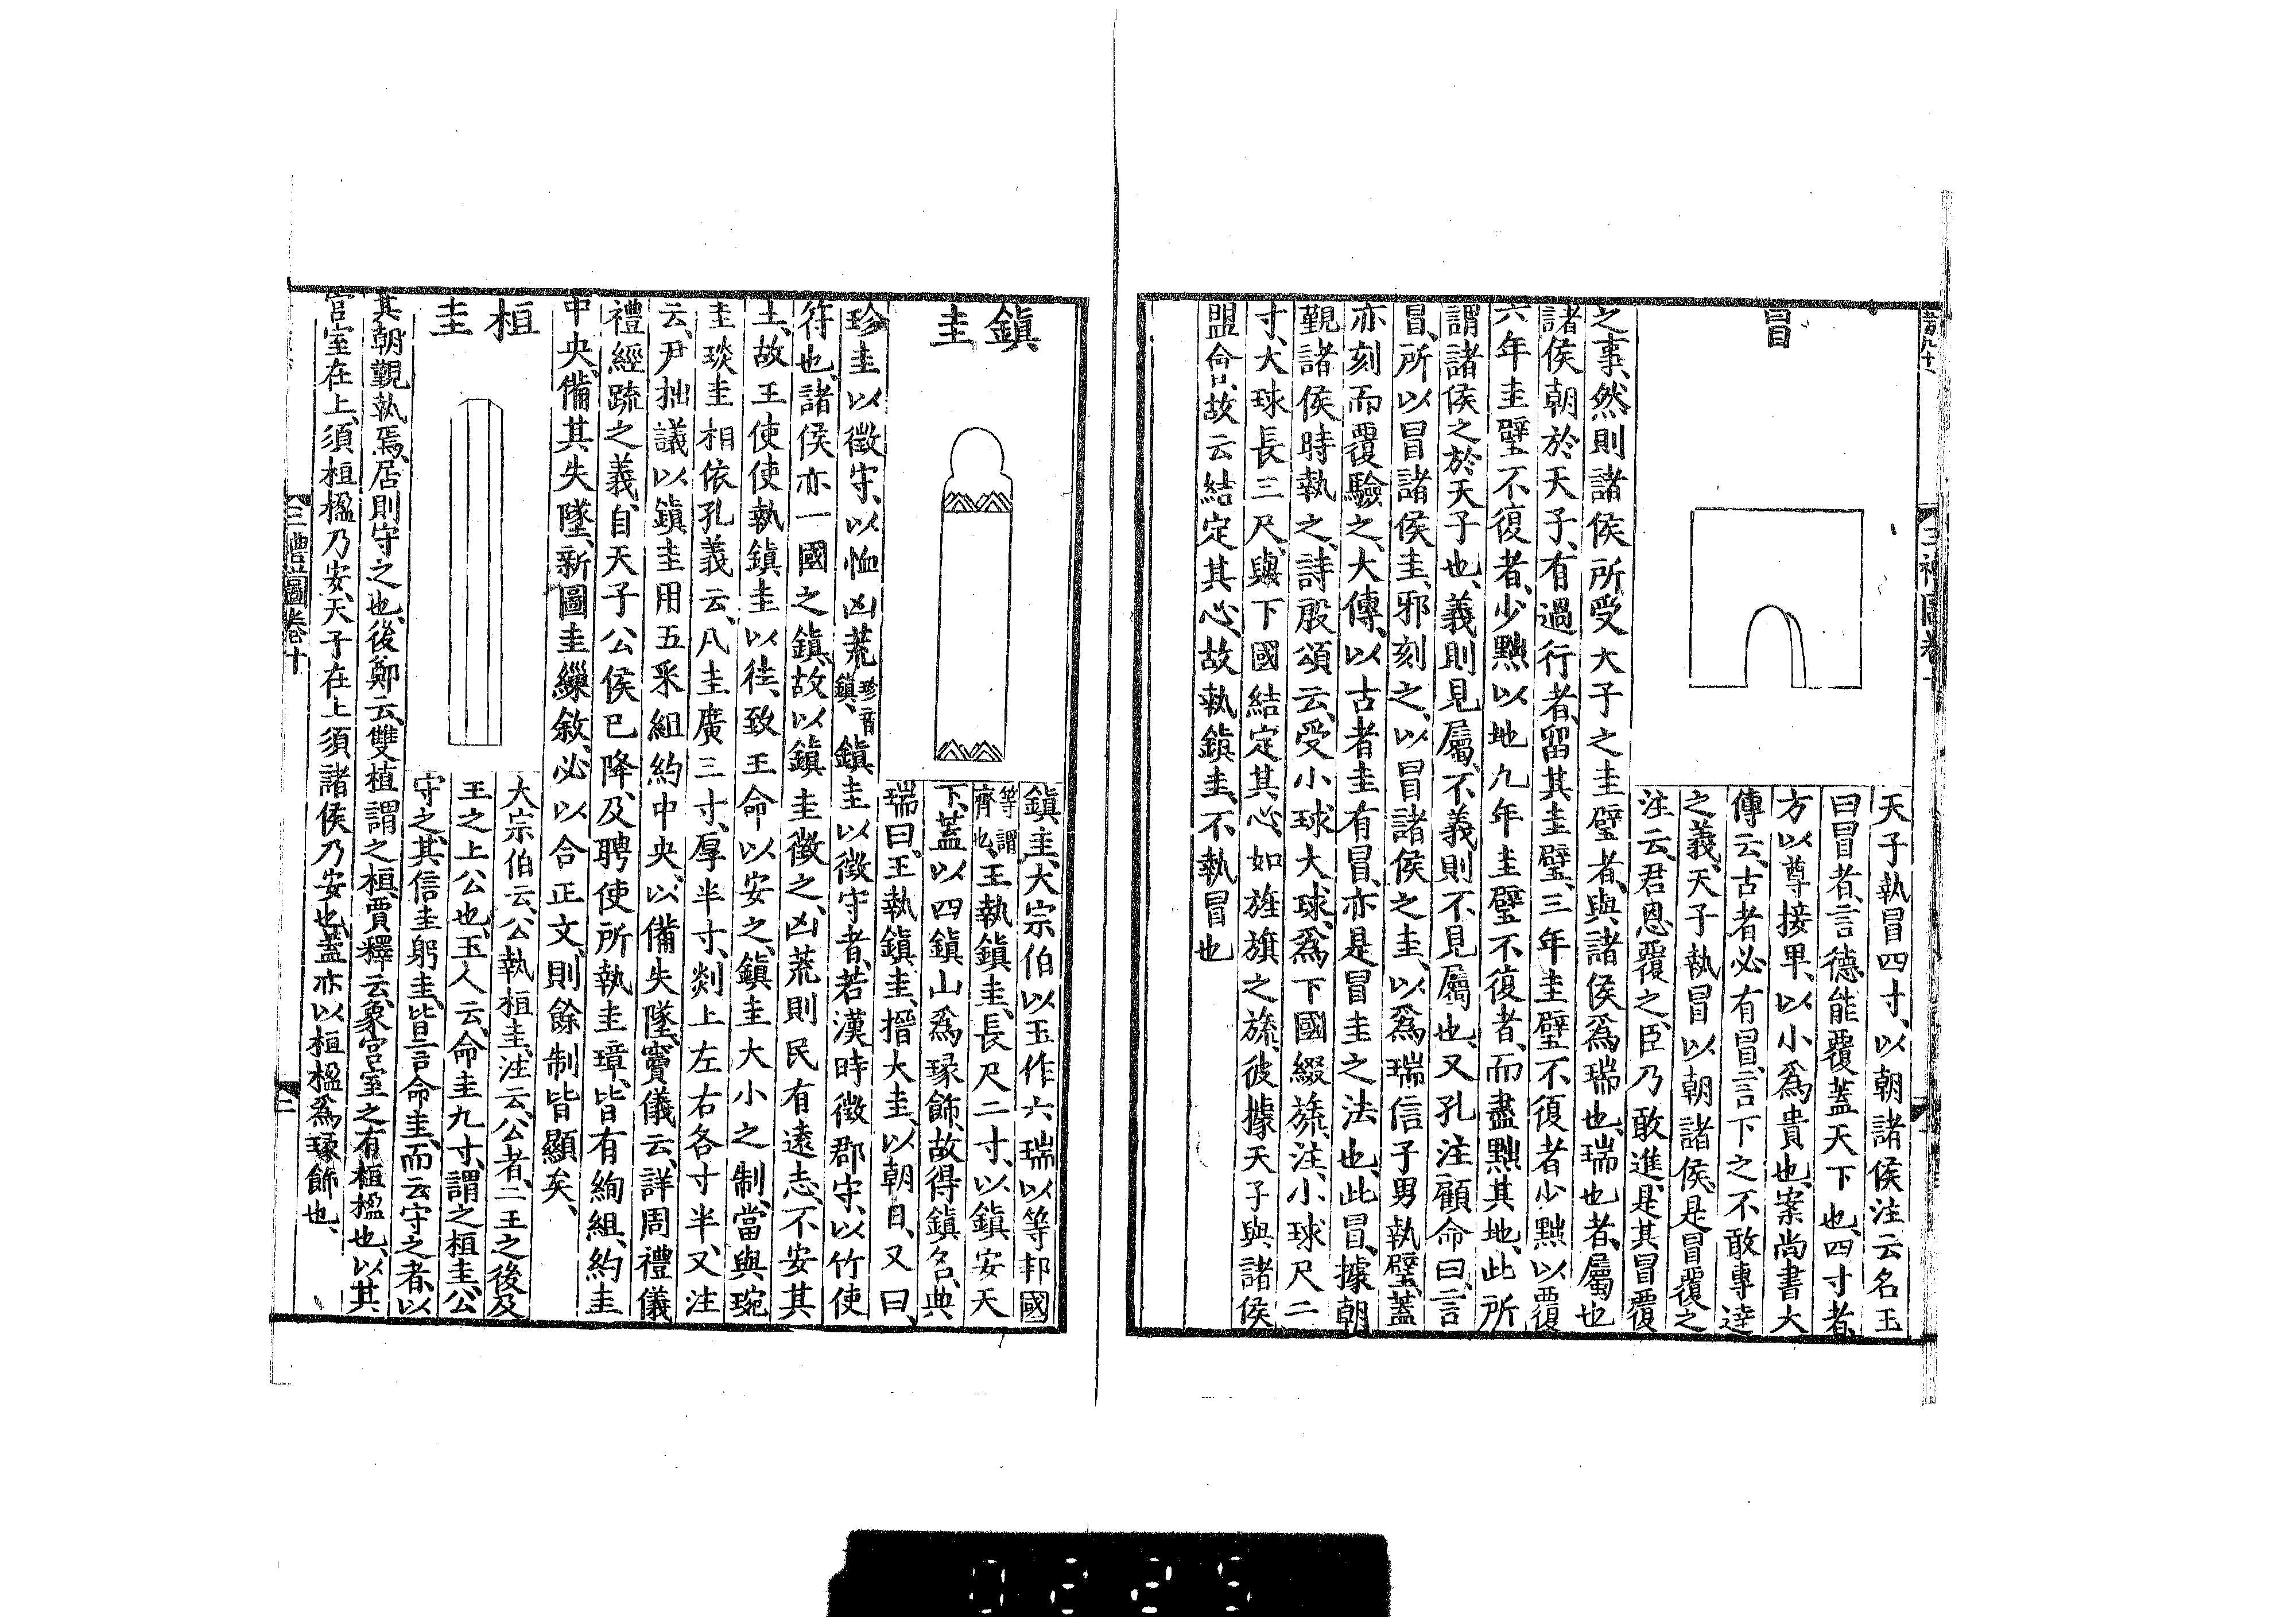 冒
天子執冒四寸、以朝諸侯注云名玉
曰冒者、言德能覆蓋天下也、四寸者、
方以尊接卑、以小爲貴也、案尚書大
傳云、古者必有冒、言下之不敢專達
之義、天子執冒以朝諸侯、是冒覆之
注云、君恩覆之、臣乃敢進、是其冒覆
之事、然則諸侯所受天子之圭璧者、與諸侯爲瑞也、瑞也者、屬也
諸侯朝於天子、有過行者、留其圭璧、三年圭璧不復者少黜以覆
六年圭璧不復者、少黜以地九年圭璧不復者、而盡黜其地、此所
謂諸侯之於天子也、義則見屬、不義則不見屬也、又孔注顧命曰、言
冒、所以冒諸侯圭、邪刻之、以冒諸侯之圭、以爲瑞信子男執璧、蓋
亦刻而覆驗之、大傳、以古者圭有冒、亦是冒圭之法也、此冒、據朝
覲諸侯時執之、詩殷頌云、受小球大球、爲下國綴旒、注、小球尺二
寸、大球長三尺、與下國結定其心、如旌旗之旒、彼據天子與諸侯
盟會、故云結定其心、故執鎮圭、不執冒也
鎮圭
鎮圭、大宗伯以玉作六瑞以等邦國
等謂齊也、王執鎮圭、長尺二寸、以鎮安天
下、蓋以四鎮山爲瑑飾、故得鎮名、典
瑞曰、王執鎮圭、搢大圭、以朝日、又曰、
珍圭以徵守、以恤凶荒珍音鎮、鎮圭以徵守者、若漢時徵郡守、以竹使
符也、諸侯亦一國之鎮、故以鎮圭徵之、凶荒則民有遠志、不安其
土、故王使使執鎮圭以往、致王命以安之、鎮圭大小之制、當與琬
圭琰圭相依孔義云、八圭廣三寸、厚半寸、剡上左右各寸半、又注
云、尹拙議以鎮圭用五采組約中央、以備失墜、竇儀云、詳周禮儀
禮經疏之義、自天子公侯已降、及聘使所執圭璋、皆有絢組、約圭
中央、備其失墜、新圖圭繅敘、必以合正文、則餘制皆顯矣、
桓圭
大宗伯云、公執桓圭、注云、公者、二王之後及
王之上公也、玉人云、命圭九寸、謂之桓圭、公
守之、其信圭躬圭、皆言命圭、而云守之者、以
其朝覲執焉、居則守之也、後鄭云、雙植謂之桓、賈釋云、象宮室之有桓楹也、以其
宮室在上、須桓楹乃安、天子在上須諸侯乃安也、蓋亦以桓楹爲瑑飾也、
三禮圖卷十
二
0225